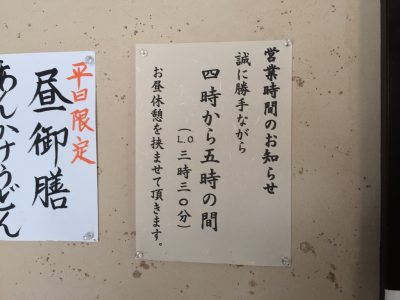 営業時間のお知らせ
誠に勝手ながら
四時から五時の間
(L.O 三時三〇分)
お昼休憩を挟ませて頂きます。
平日限定
昼御膳
あんかけうどん